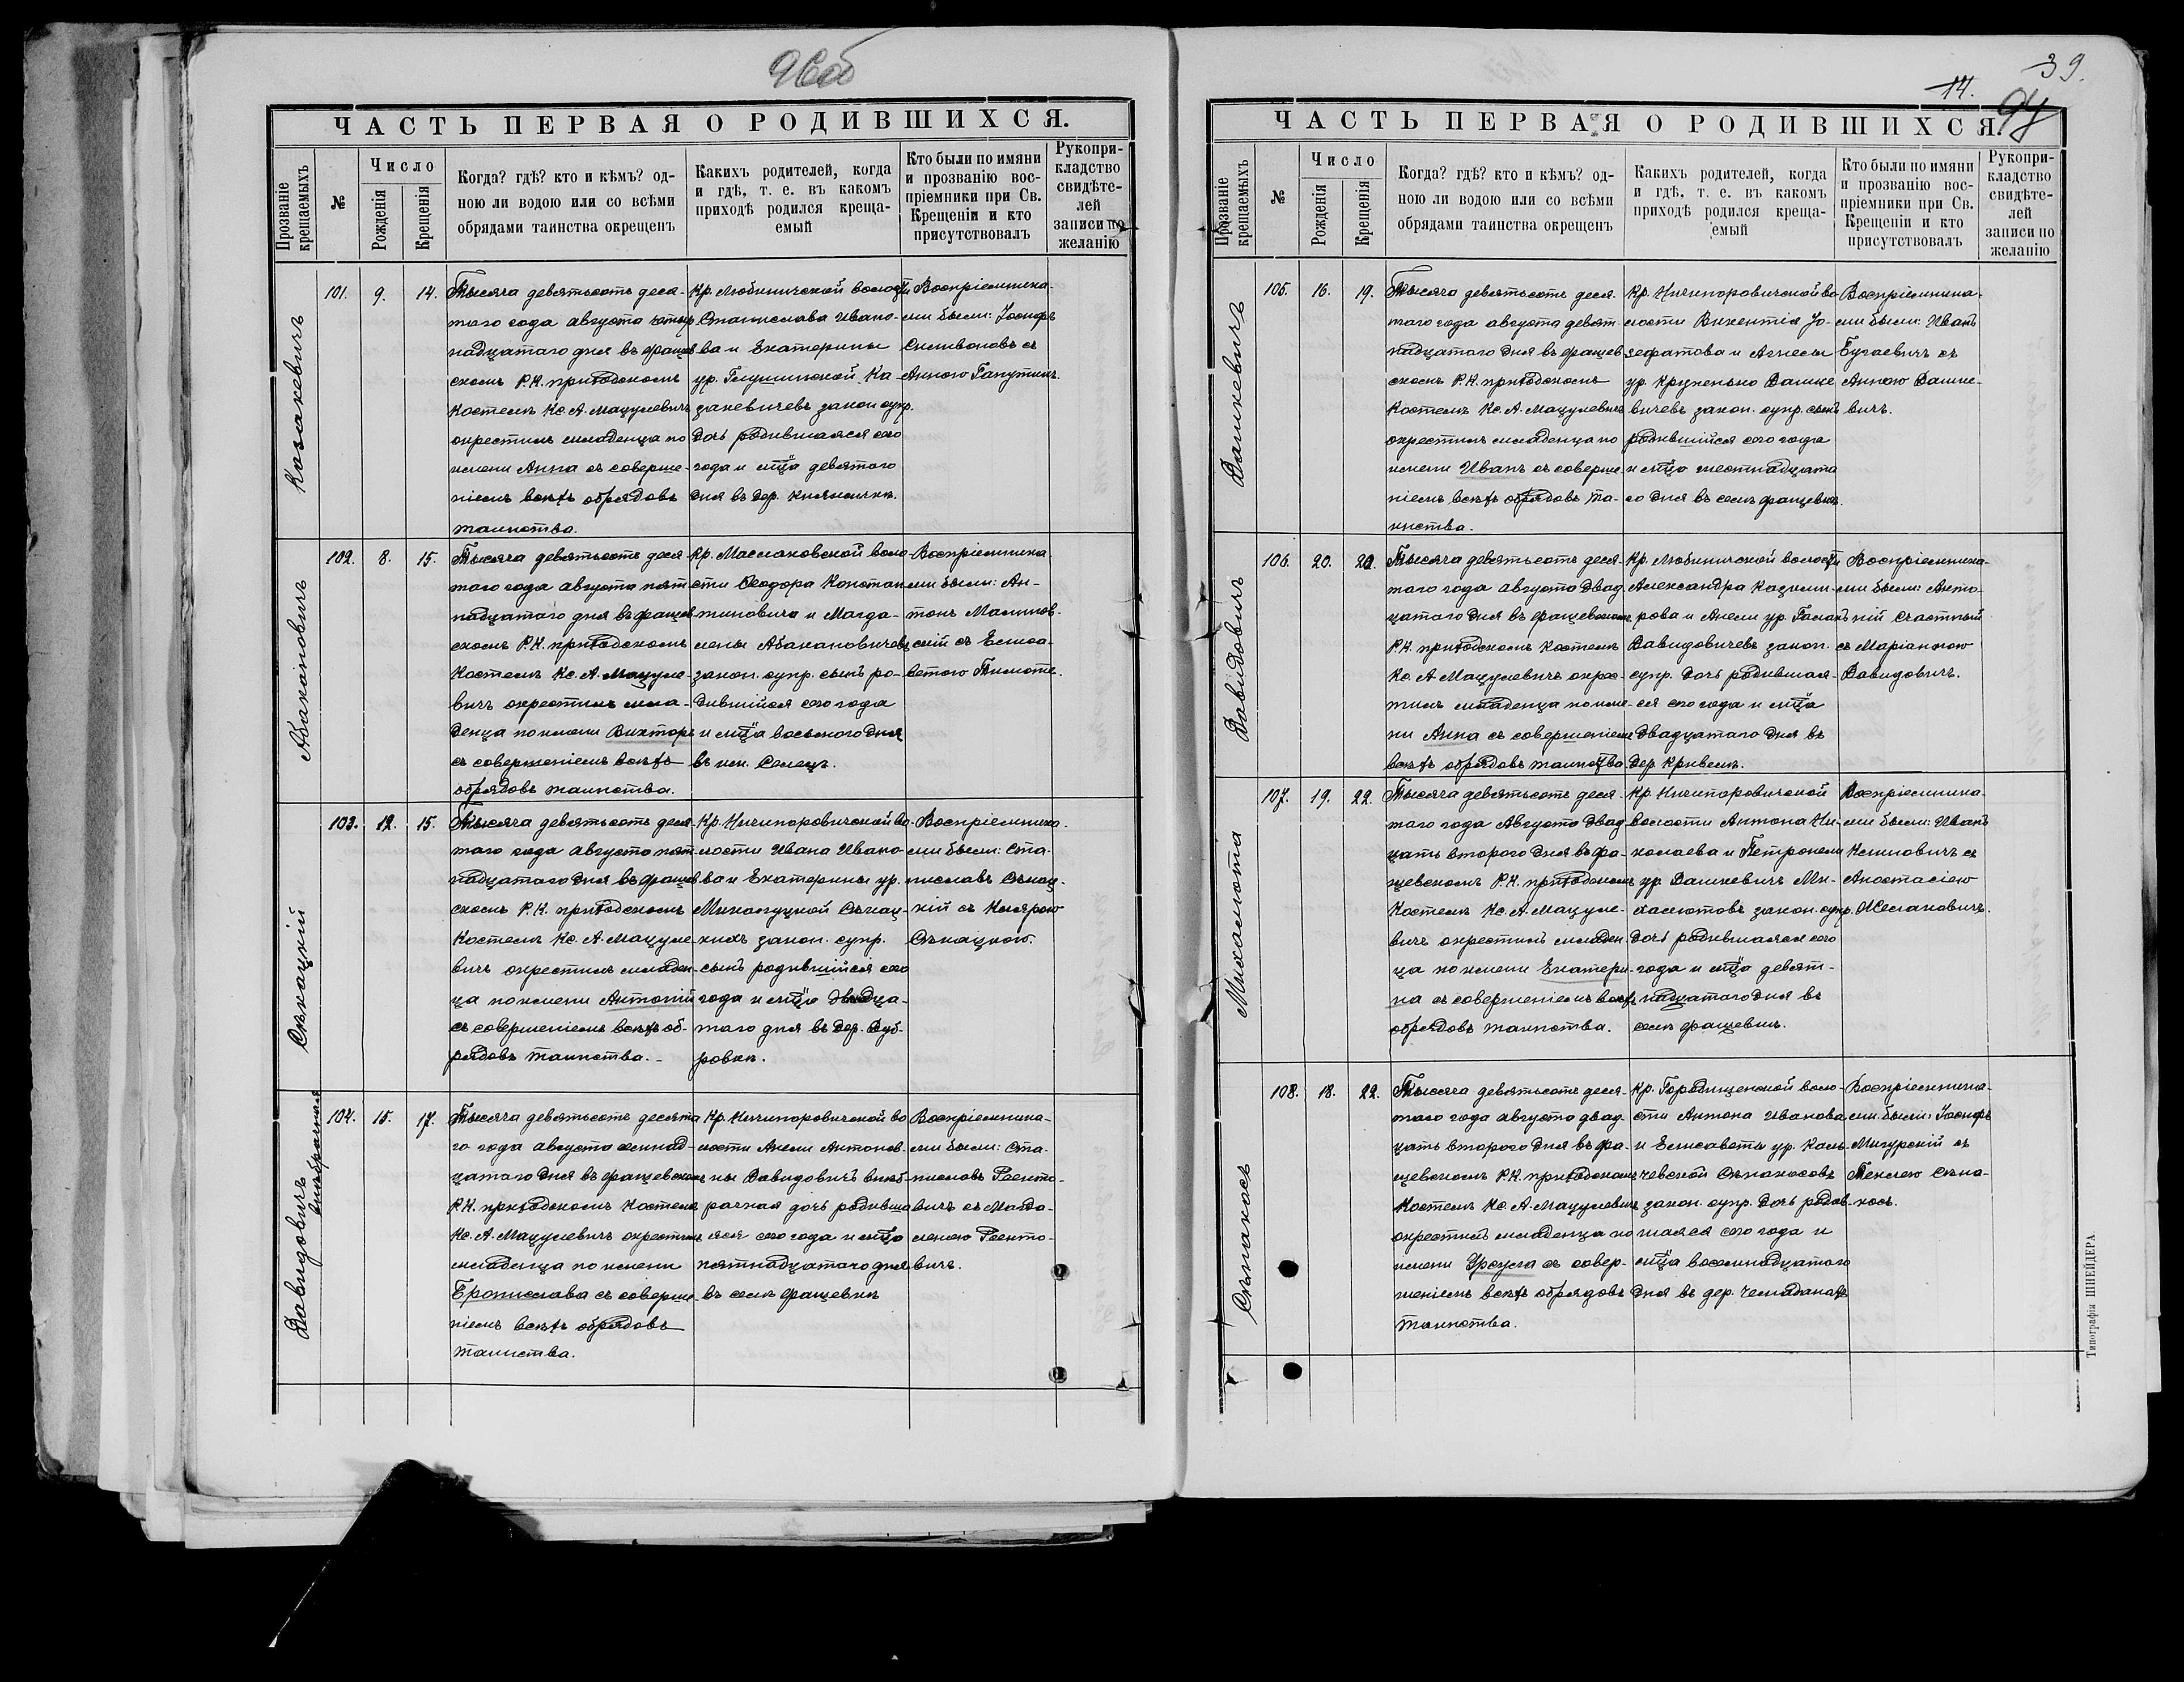 96об
ЧАСТЬ ПЕРВАЯ О РОДИВШИХСЯ.
Прозваніе крещаемыхъ
№
Число
Рожденія
Крещенія
Когда? гдѣ? кто и кѣмъ? од-
ною ли водою или со всѣми
обрядами таинства окрещенъ
Какихъ родителей, когда
и гдѣ, т. е. въ какомъ
приходѣ родился креща-
емый
Кто были по имяни
и прозванію вос-
пріемники при Св.
Крещеніи и кто
присутствовалъ
Рукопри-
кладство
свидѣте-
лей
записи по
желанію
Козакевичъ
101.
9.
14.
Тысяча девятьсотъ деся-
таго года августа четыр
надцатаго дня въ Фащев
скомъ Р.К. приходскомъ
Костелѣ Кс. А. Мацулевичъ
окрестилъ младенца по
имени Анна съ соверше-
ніемъ всѣхъ обрядовъ
таинства.
Кр. Любиничской волости
Станислава Ивано-
ва и Екатерины
ур. Глушинской Ка-
закевичевъ закон супр.
дочь родившаяся сего
года и мца девятаго
дня въ дер. Княжички.
Воспріемника-
ми были: Іосифъ
Силивоновъ съ
Анною Гапутинъ.
Абакановичъ
102.
8.
15.
Тысяча девятьсотъ деся-
таго года августа пят
надцатаго дня въ Фащев
скомъ Р.К. приходскомъ
Костелѣ Кс. А. Мацуле-
вичъ окрестилъ мла-
денца по имени Викторъ
съ совершеніемъ всѣхъ
обрядовъ таинства.
Кр. Маслаковской воло
сти Ѳеодора Констан
тиновича и Магда-
лены Абакановичевъ
закон. супр. сынъ ро-
дившійся сего года
и мца восьмого дня
въ им. Селецъ.
Воспріемника
ми были: Ан-
тонъ Малинов-
скій съ Елиса-
ветою Пилоте.
Сѣкацкій
103.
12.
15.
Тысяча девятьсотъ деся-
таго года августа пят-
надцатаго дня въ Фащев
скомъ Р.К. приходскомъ
Костелѣ Кс. А. Мацуле
вичъ окрестилъ младен-
ца по имени Антоній
съ совершеніемъ всѣхъ об-
рядовъ таинства.
Кр. Ничипоровичской во-
лости Ивана Ивано-
ва и Екатерины ур.
Миколуцкой Сѣкац-
кихъ закон. супр.
сынъ родившійся сего
года и мца двадца-
таго дня въ дер. Дуб-
ровки.
Воспріемника-
ми были: Ста-
ниславъ Сѣкац-
кій съ Клярою
Сѣкацкою.
Давидовичъ
внѣбрачная
104.
15.
17.
Тысяча девятьсотъ десята
го года августа семнад-
цатаго дня въ Фащевскомъ
Р.К. приходскомъ Костелѣ
Кс. А. Мацулевичъ окрестилъ
младенца по имени
Бронислава съ соверше-
ніемъ всѣхъ обрядовъ
таинства.
Кр. Ничипоровичской во
лости Анели Антонов-
ны Давидовичъ внѣб-
рачная дочь родивша
яся сего года и мца
пятнадцатаго дня
въ селѣ Фащевкѣ
Воспріемника-
ми были: Ста-
ниславъ Реенто-
вичъ съ Магда-
леною Реенто-
вичъ.
39.
14.
97
ЧАСТЬ ПЕРВАЯ О РОДИВШИХСЯ.
Прозваніе крещаемыхъ
№
Число
Рожденія
Крещенія
Когда? гдѣ? кто и кѣмъ? од-
ною ли водою или со всѣми
обрядами таинства окрещенъ
Какихъ родителей, когда
и гдѣ, т. е. въ какомъ
приходѣ родился креща-
емый
Кто были по имяни
и прозванію вос-
пріемники при Св.
Крещеніи и кто
присутствовалъ
Рукопри-
кладство
свидѣте-
лей
записи по
желанію
Дашкевичъ
105.
16.
19.
Тысяча девятьсотъ деся-
таго года августа девят
надцатаго дня въ Фащев
скомъ Р.К. приходскомъ
Костелѣ Кс. А. Мацулевичъ
окрестилъ младенца по
имени Иванъ съ соверше
ніемъ всѣхъ обрядовъ та-
инства.
Кр. Ничипоровичской во
лости Викентія Іо-
зефатова и Агнесы
ур. Крупенько Дашке
вичевъ закон. супр. сынъ
родившійся сего года
и мца шестнадцата
го дня въ селѣ Фащевкѣ.
Воспріемника-
ми были: Иванъ
Бугаевичъ съ
Анною Дашке-
вичъ.
Давидовичъ
106.
20.
20.
Тысяча девятьсотъ деся-
таго года августа двад
цатаго дня въ Фащевскомъ
Р.К. приходскомъ Костелѣ
Кс. А Мацулевичъ окрес-
тилъ младенца по име-
ни Анна съ совершеніемъ
всѣхъ обрядовъ таинства
Кр. Любиничской волости
Александра Казими-
рова и Анели ур. Галай
Давидовичевъ закон.
супр. дочь родившая-
ся сего года и мца
двадцатаго дня въ
дер. Кривелѣ.
Воспріемника-
ми были: Анто-
ній Счастный
съ Маріанною
Давидовичъ.
Михалюта
107.
19.
22.
Тысяча девятьсотъ деся-
таго года Августа двад
цать второго дня въ Фа-
щевскомъ Р.К. приходскомъ
Костелѣ Кс. А. Мацуле-
вичъ окрестилъ младен
ца по имени Екатери-
на съ совершеніемъ всѣхъ
обрядовъ таинства.
Кр. Ничипоровичской
волости Антона Ни-
колаева и Петронели
ур. Дашкевичъ Ми-
халютовъ закон. супр.
дочь родившаяся сего
года и мца девят-
надцатаго дня въ
селѣ Фащевки.
Воспріемника-
ми были: Иванъ
Климовичъ съ
Анастасіею
Жемаковичъ.
Сѣнакосъ
108.
18.
22.
Тысяча девятьсотъ деся-
таго года августа двад-
цать второго дня въ Фа-
щевскомъ Р.К. приходскомъ
Костелѣ Кс. А. Мацулевичъ
окрестилъ младенца по
имени Урсула съ совер-
шеніемъ всѣхъ обрядовъ
таинства.
Кр. Городищенской воло-
сти Антона Иванова
и Елисаветы ур. Каль-
чевской Сѣнакосовъ
закон. супр. дочь родив-
шаяся сего года и
мца восемнадцатаго
дня въ дер. Чемаданахъ
Воспріемника-
ми были: Іосифъ
Мигурскій съ
Теклею Сѣна-
косъ.
Типографія ШНЕЙДЕРА